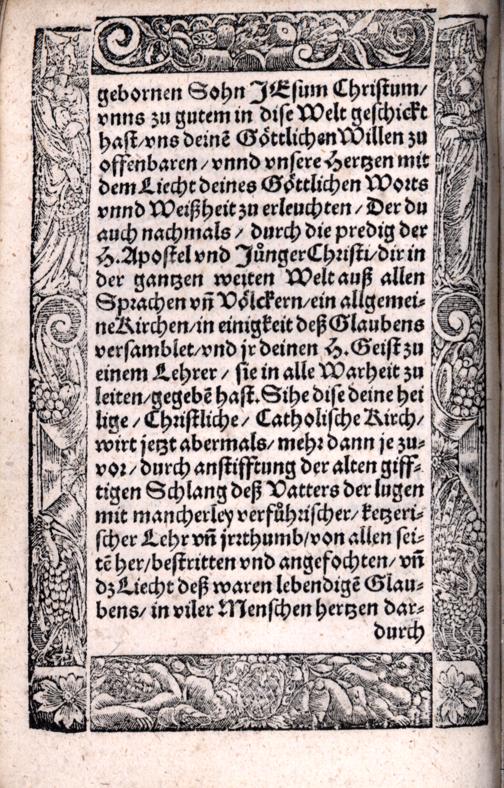 gebornen Sohn JEsum Christum/
vnns zu gutem in dise Welt geschickt
hast/ vns deinē Göttlichen Willen zu
offenbaren/ vnnd vnsere Hertzen mit
dem Liecht deines Göttlichen Worts
vnnd Weißheit zu erleuchten/ Der du
auch nachmals/ durch die predig der
H. Apostel vnd Jůnger Christi/ dir in
der gantzen weiten Welt auß allen
Sprachen vñ Völckern/ ein allgemei-
ne Kirchen/ in einigkeit deß Glaubens
versamblet/ vnd jr deinen H. Geist zu
einem Lehrer/ sie in alle Warheit zu
leiten/ gegebē hast. Sihe dise deine hei
lige/ Christliche/ Catholische Kirch/
wirt jetzt abermals/ mehr dann je zu-
vor/ durch anstifftung der alten giff-
tigen Schlang deß Vatters der lugen
mit mancherley verfůhrischer/ ketzeri-
scher Lehr vñ jrrthumb/ von allen sei-
tē her/ bestritten vnd angefochten/ vñ
dz Liecht deß waren lebendigē Glau-
bens/ in viler Menschen hertzen dar-
durch